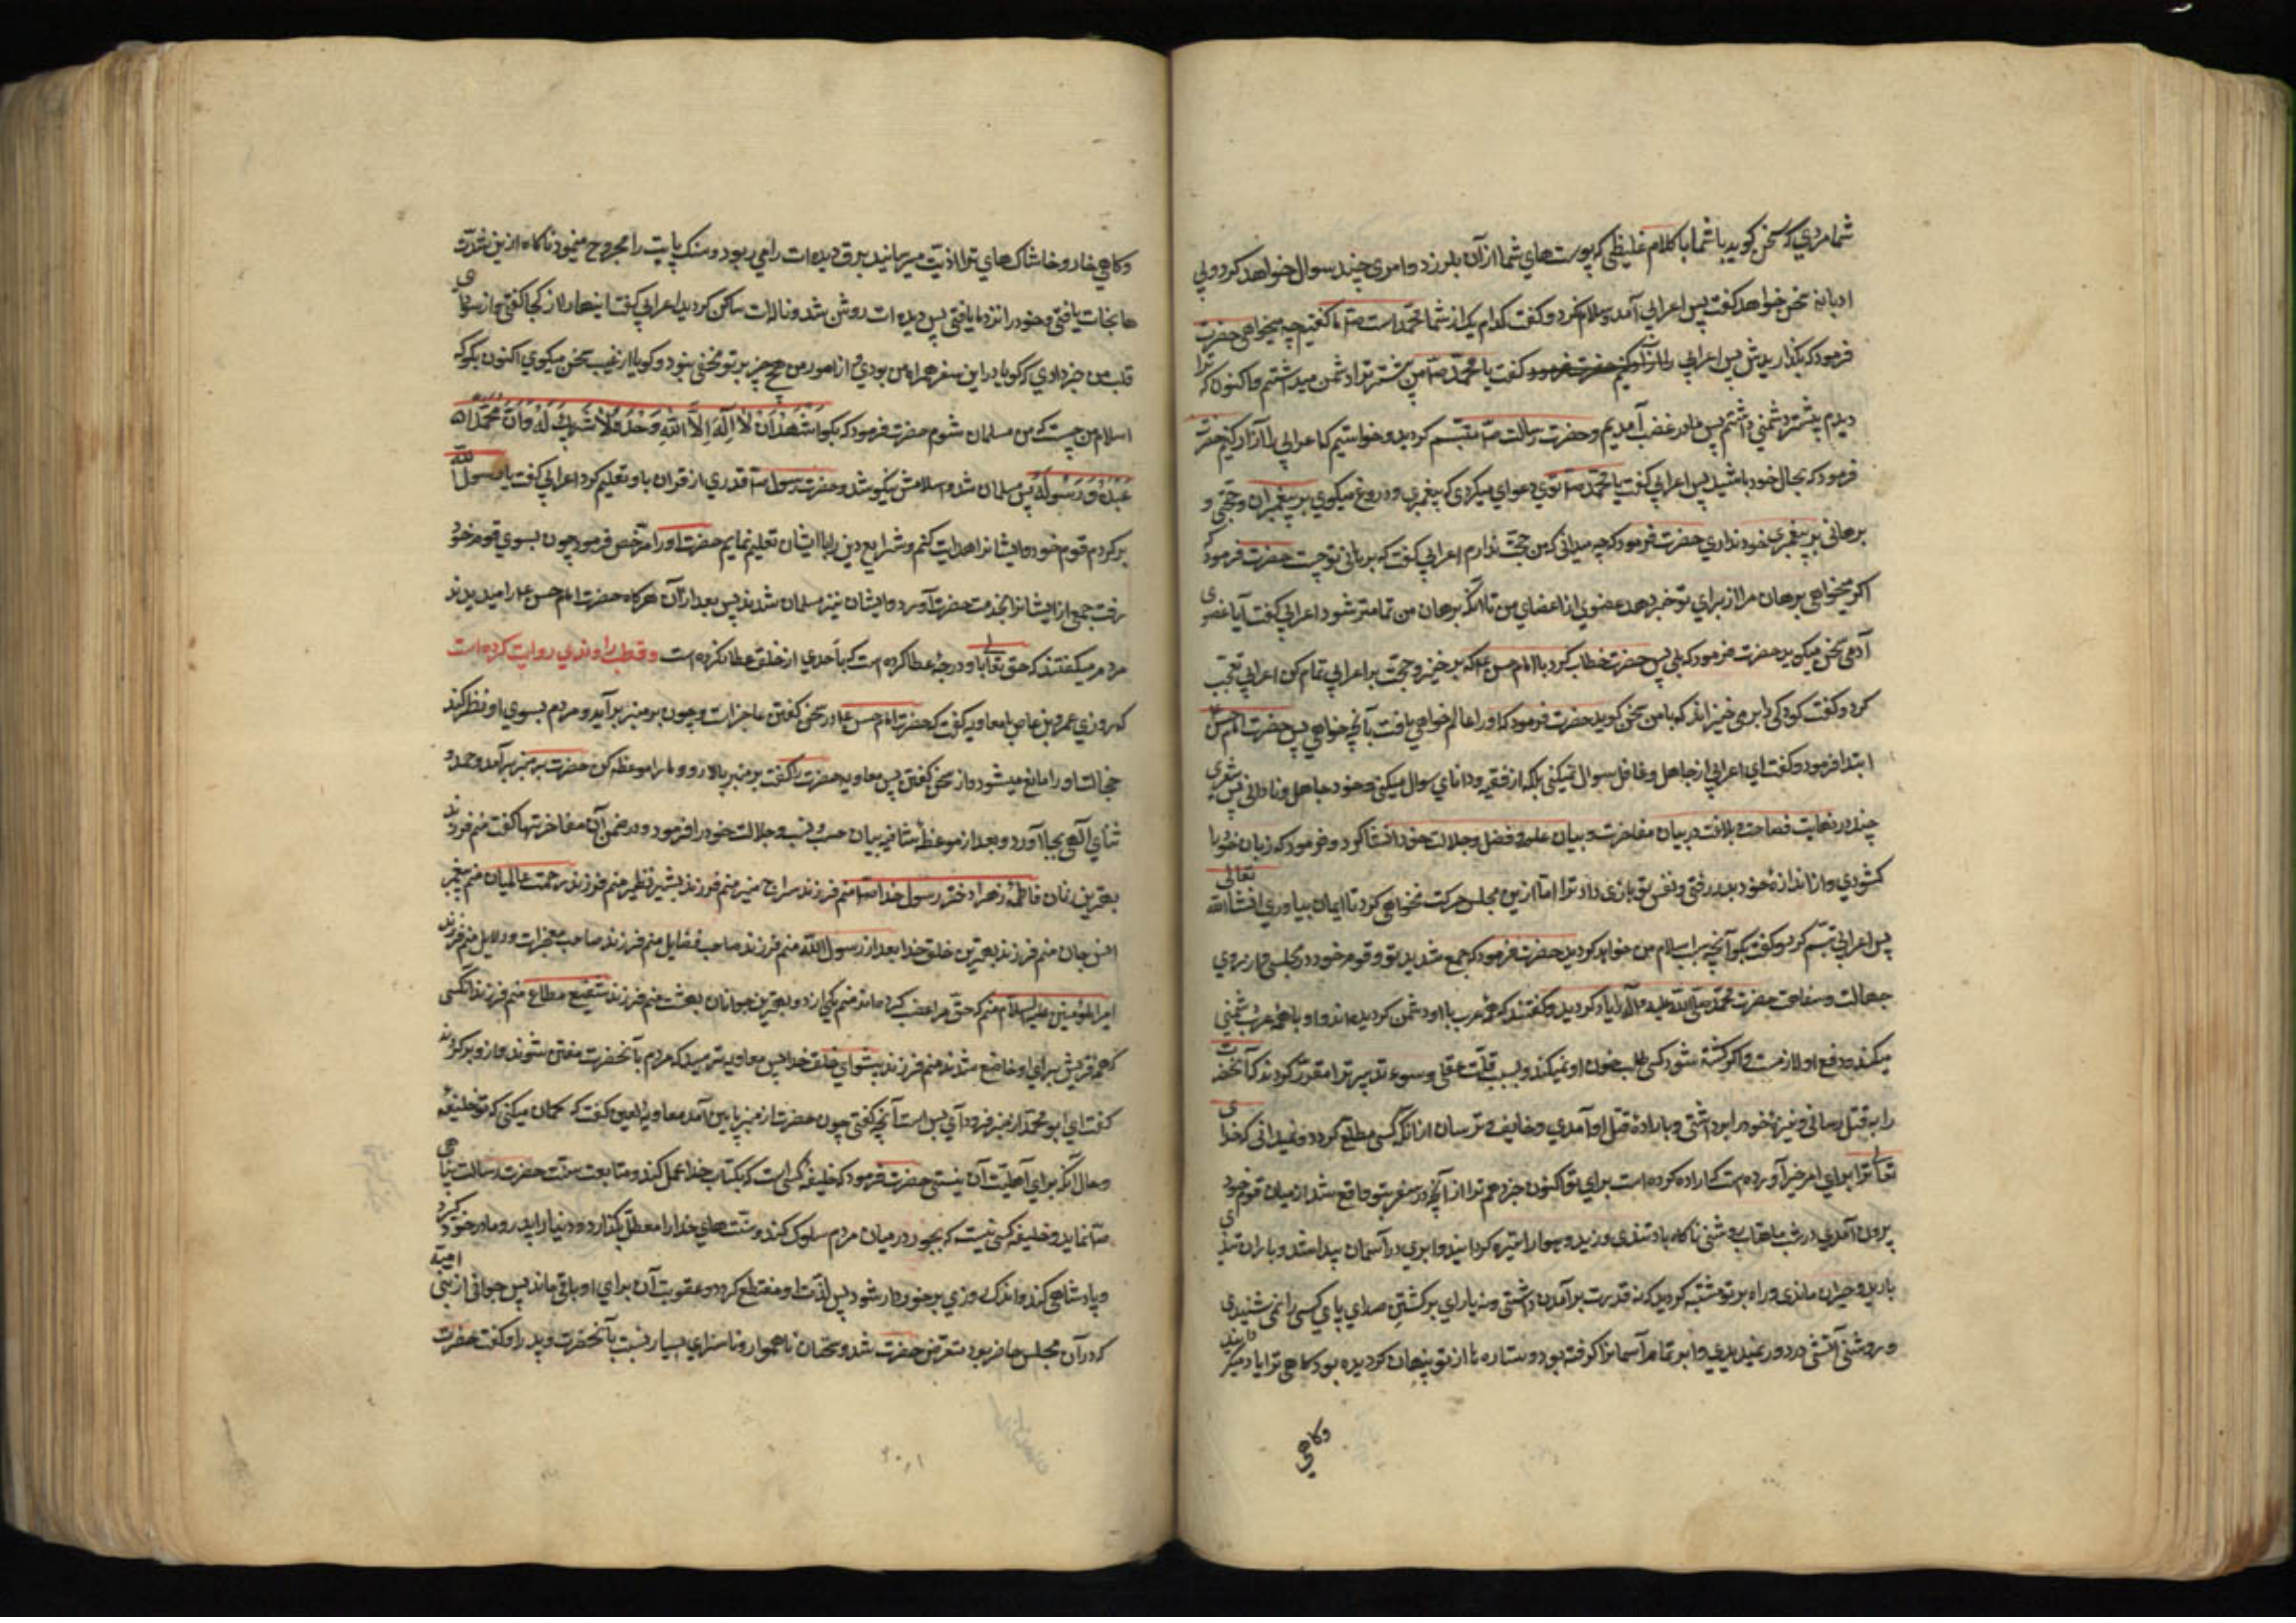 شما مردی که سخن کوید با شما با کلام غلیظی که پوست های شما از آن بلرزد و امری چند سوال خواهد کرد و بی
ادبانه سخن خواهد کفت پس اعرابی آمد و سلام نکرد و کفت کدام یک از شما محمد است ما کفتیم چه میخواهی حضرت
فرمود که بکذاریدش پس اعرابی کفت یا محمد من پیشتر ترا دشمن میداشتم و اکنون که ترا
دیدم بیشتر دشمنی داشتم پس ما در غضب آمدیم و حضرت رسالت متبسم کردید و خواستیم که اعرابی را آزار کنیم حضرت
فرمود که بحال خود باشید پس اعرابی کفت یا محمد توی دعوای میکردی که پیغمبری و دروغ میکوی بر پیغمبران و حجتی و
برهانی بر پیغمبری خود نداری حضرت فرمود که چه میدانی که من حجت ندارم اعرابی کفت که برهانی تو چیست حضرت فرمود که
اکر میخواهی برهان مرا از برای تو خبر دهد عضوی از اعضای من تا آنکه برهان من تمامتر شود اعرابی کفت آیا عضوی
آدمی سخن میکوید حضرت فرمود که بلی پس حضرت خطاب کرد با امام حسن ع که برخیز و حجت بر اعرابی تمام کن اعرابی تعجب
کرد و کفت کودکی را بر می خیزاند که با من سخن کوید حضرت فرمود که او را عالم خواهی یافت بآنچه خواهی پس حضرت امام حسن ع
ابتدا فرمود و کفت ای اعرابی از جاهل و غافل سوال نمیکنی بلکه از فقیه و دانای سوال میکنی و خود جاهل و نادانی پس شعری
چند در نهایت فصاحت و بلاغت در بیان مفاخرت و بیان علم و فضل و جلالت خود انشا کرد و فرمود که زبان خود را
کشودی و از اندازهٔ خود بدر رفتی و نفس تو بازی داد ترا اما ازین مجلس حرکت نخواهی کرد تا ایمان بیاوری انشاالله تعالی
پس اعرابی تبسم کرد و کفت بکو آنچه سبب اسلام من خواهد کردید حضرت فرمود که جمع شدید تو و قوم خود در مجلس و از روی
جهالت و سفاهت حضرت محمد صلی الله علیه و آله را یاد کردید و کفتند که همه عرب با او دشمن کردیده اند و او با همه عرب دشمنی
میکند و دفع او لازمست و اکر کشته شود کسی طلب خون او نمیکند و بسبب قلت عقل و سوء تدبیر ترا مقدر کردند که آنحضرت
را به قتل رسانی و نیزهٔ خود را برداشتی و باراده قتل او آمدی و خایف و ترسان از آنکه کسی مطلع کردد و نمیدانی که خدای
تعالی ترا برای امر خیر آورده است که اراده کرده است برای تو اکنون خبر دهم ترا از آنچه در سفر بتو واقع شد از میان قوم خود
بیرون آمدی در شب ماهتاب روشنی ناکاه باد تندی وزید و هوا را تیره کردانید و ابری در آسمان پیدا شد و باران تندی
بارید و حیران ماندی و راه بر تو مشتبه کردید که نه قدرت بر آمدن داشتی و نه یارای برکشتن صدای پای کسی را نمی شنیدی
و روشنی آتشی در دور نمیدیدی و ابر تمام آسمانرا کرفته بود و ستاره ها از تو پنهان کردیده بود کاهی ترا باد میکردانید
وکاهی
وکاهی خار و خاشاک های ترا اذیت میرسانید برق دیده ات را می ربود و سنک پایت را مجروح مینمود ناکاه ازین شدت
ها نجات یافتی و خود را نزد ما یافتی پس دیده ات روشن شد و ناله ات ساکن کردید اعرابی کفت اینها را از کجا کفتی و از سودای
قلب من خبر دادی که کویا در این سفر همراه من بودی و از امور من هیچ چیز بر تو مخفی نبود و کویا از غیب سخن میکوی اکنون بکو که
اسلام من چیست که من مسلمان شوم حضرت فرمود که بکو اشهد ان لا اله الا الله وحده لا شریک له وان محمدا
عبده و رسوله پس مسلمان شد و اسلامش نیکو شد و حضرت رسول قدری از قران باو تعلیم کرد اعرابی کفت یا رسول الله
برکردم قوم خود و ایشانرا هدایت کنم و شرایع دین را با ایشان تعلیم نمایم حضرت او را مرخص فرمود چون بسوی قوم خود
رفت جمعی از ایشانرا بخدمت حضرت آورد و ایشان نیز مسلمان شدند پس بعد از آن هرکاه حضرت امام حسن ع را میدیدند
مردم میکفتند که حق تعالی باو درجهٔ عطا کرده است که باحدی از خلق عطا نکرده است و قطب راوندی روایت کرده است
که روزی عمرو بن عاص با معاویه کفت که حضرت امام حسن ع در سخن کفتن عاجز است و چون بر منبر برآید و مردم بسوی او نظر کنند
خجالت او را مانع میشود از سخن کفتن پس معاویه حضرت را کفت بر منبر بالا رو و ما را موعظه کن حضرت بر منبر برآمد و حمد و
ثنای آلهی بجا آورد و بعد از موعظهٔ شافیه بیان حسب و نسب و جلالت خود را فرمود و در ضمن آن مفاخرتها کفت منم فرزند
بهترین زنان فاطمهٔ زهرا دختر رسول خدا منم فرزند سراج منیر منم فرزند بشیر نذیر منم فرزند رحمت عالمیان منم پیغمبر
انس و جان منم فرزند بهترین خلق خدا بعد از رسول الله منم فرزند صاحب فضایل منم فرزند صاحب معجزات و دلایل منم فرزند
امیرالمؤمنین علیه السلام منم که حق مرا غصب کرده اند منم یکی از دو بهترین جوانان بهشت منم فرزند شفیع مطاع منم فرزند آنکسی
که همه قریش برای او خاضع شدند منم فرزند پیشوای خلق خدا پس معاویه ترسید که مردم بآنحضرت مفتن شوند و از و برکردند
کفت ای ابو محمد از منبر فرود آی بس است آنچه کفتی چون حضرت از منبر پایین آمد معاویه لعین کفت که کمان میکنی که تو خلیفهٔ
و حال آنکه برای آهلیت آن نیستی حضرت فرمود که خلیفه کسی است که بکتاب خدا عمل کند و متابعت سنت حضرت رسالت پناهی
نماید و خلیفه کسی نیست که بجور در میان مردم سلوک کند و سنت های خدا را معطل بکذارد و دنیا را پدر و مادر خود کیرد
و پادشاهی کند و اندک روزی برخوردار شود پس لذت او منقطع کردد و عقوبت آن برای او باقی ماند پس جوانی از بنی امیه
که در آن مجلس حاضر بود متعرض حضرت شد و سخنان ناهموار و ناسزای بسیار نسبت بآنحضرت و پدر او کفت حضرت